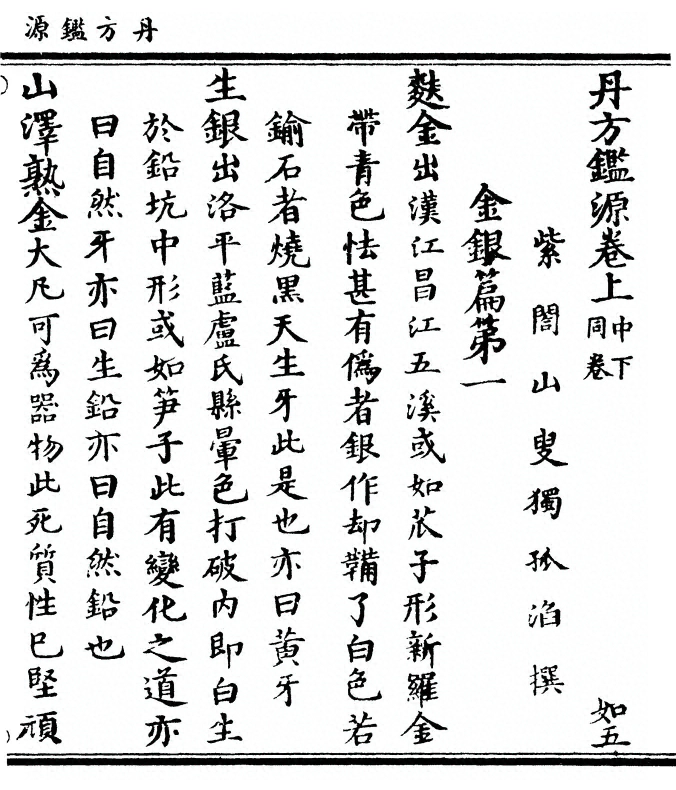 丹方鑑源
丹方鑑源卷上中下同卷 如五
紫閣山叟獨孤滔撰
金銀篇第一
麩金出漢江昌江五溪或如苽子形新羅金
帶青色怯甚有僞者銀作却鞴了白色若
鍮石者燒黑天生牙此是也亦曰黃牙
生銀出洛平藍盧氏縣暈色打破內即白生
於鉛坑中形或如笋子此有變化之道亦
曰自然牙亦曰生鉛亦曰自然鉛也
山澤熟金大凡可爲器物此死質性已堅頑